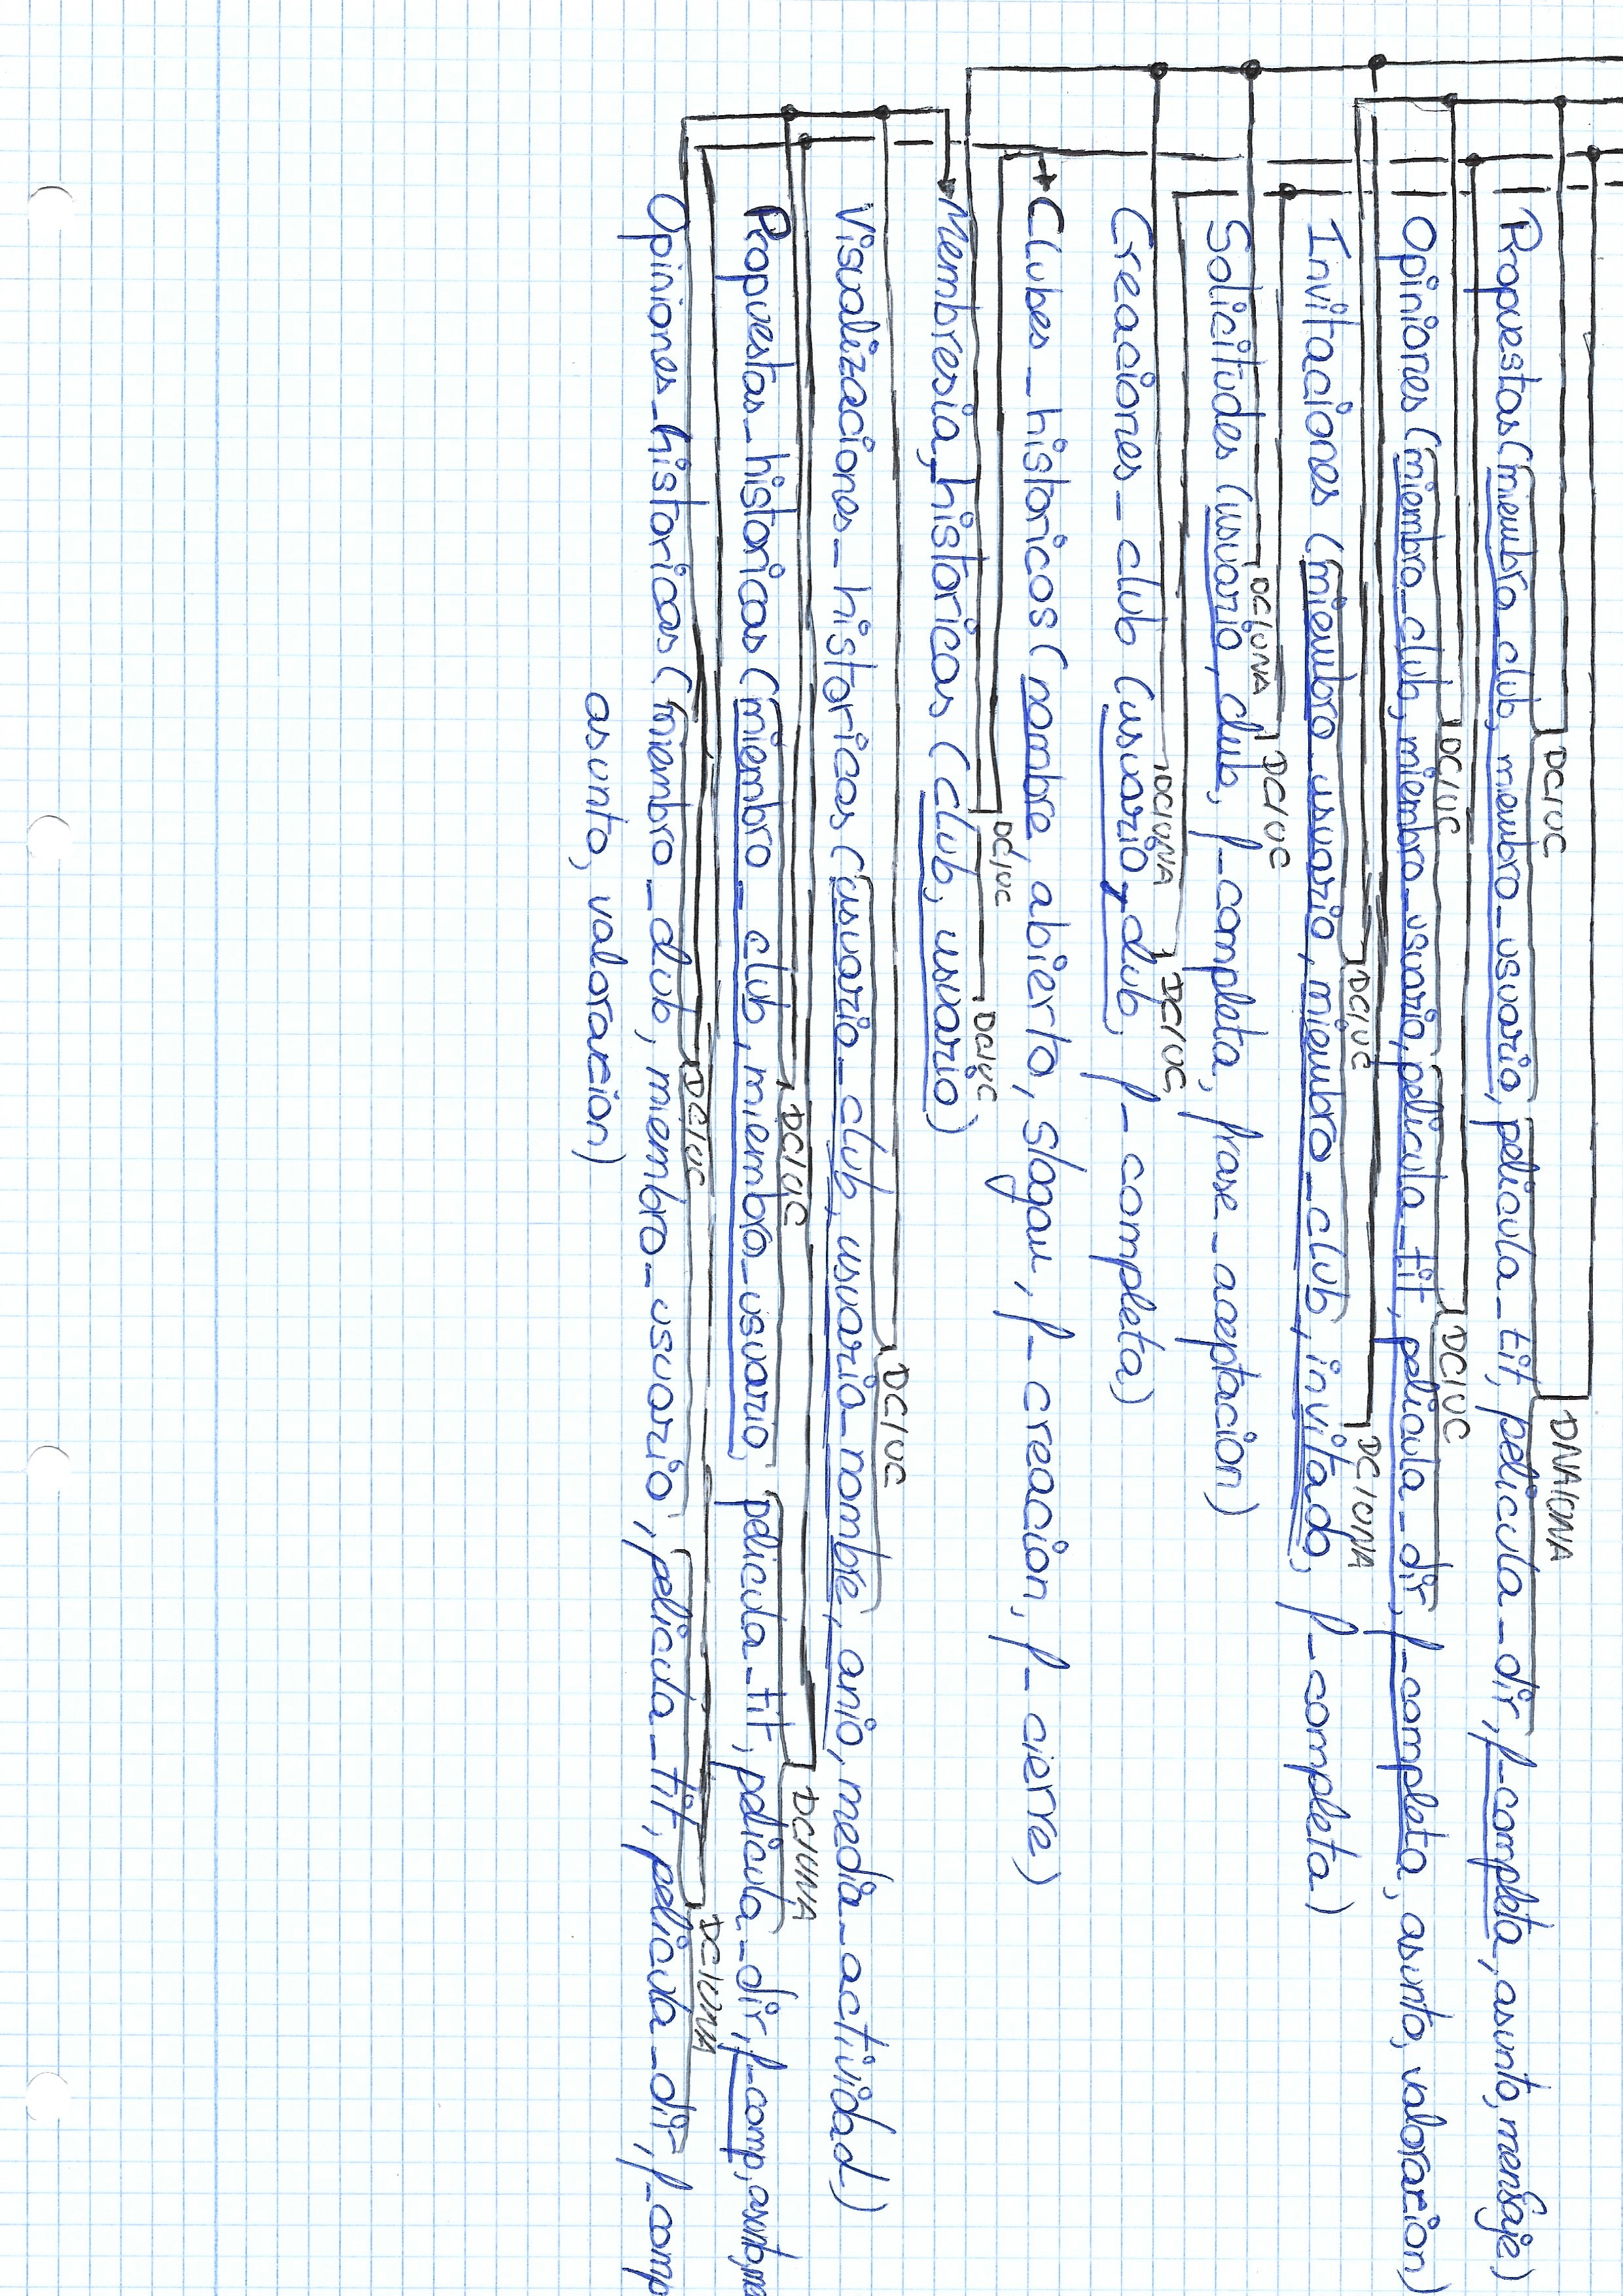 DNA/UNA
DC/UC
Propuestas (miembro_club, miembro_usuario, pelicula_tit, pelicula_dir, f_completa, asunto, mensaje)
DC/UC DC/UC
Opiniones (miembro_club, miembro_usuario, pelicula_tit, pelicula_dir, f_completa, asunto, valoracion)
DC/UC DC/UNA
Invitaciones (miembro_usuario, miembro_club, invitado, f_completa)
DC/UNA DC/UC
Solicitudes (usuario, club, f_completa, frase_aceptacion)
DC/UNA DC/UC
Creaciones_club (usuario, club, f_completa)
Clubes_historicos (nombre, abierto, slogan, f_creacion, f_cierre)
DC/UC DC/UC
Membresia_historicas (club, usuario)
DC/UC
Visualizaciones_historicas (usuario_club, usuario_nombre, anio, media_actividad)
DC/UC DC/UNA
Propuestas_historicas (miembro_club, miembro_usuario, pelicula_tit, pelicula_dir, f_comp, asunto, me
DC/UC DC/UNA
Opiniones_historicas (miembro_club, miembro_usuario, pelicula_tit, pelicula_dir, f_comp
asunto, valoracion)